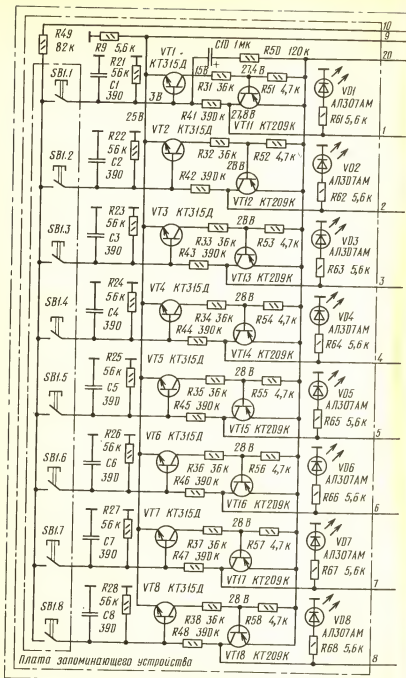 R49
82к
R9 5,6к
10
9
20
SB1.1
R21
56к
C1
390
VT1 -
КТ315Д
C10 1МК
R50 120к
15В
R31 36к
27,4В
R51 4,7к
3В
R41 390к
27,8В
VT11 КТ209К
VD1
АЛ307АМ
R61 5,6к
1
25В
SB1.2
R22
56к
C2
390
VT2 КТ315Д
R32 36к
R52 4,7к
28В
R42 390к
VT12 КТ209К
VD2
АЛ307АМ
R62 5,6к
2
SB1.3
R23
56к
C3
390
VT3 КТ315Д
28В
R33 36к
R53 4,7к
R43 390к
VT13 КТ209К
VD3
АЛ307АМ
R63 5,6к
3
SB1.4
R24
56к
C4
390
VT4 КТ315Д
28В
R34 36к
R54 4,7к
R44 390к
VT14 КТ209К
VD4
АЛ307АМ
R64 5,6к
4
SB1.5
R25
56к
C5
390
VT5 КТ315Д
28В
R35 36к
R55 4,7к
R45 390к
VT15 КТ209К
VD5
АЛ307АМ
R65 5,6к
5
SB1.6
R26
56к
C6
390
VT6 КТ315Д
28В
R36 36к
R56 4,7к
R46 390к
VT16 КТ209К
VD6
АЛ307АМ
R66 5,6к
6
SB1.7
R27
56к
C7
390
VT7 КТ315Д
28В
R37 36к
R57 4,7к
R47 390к
VT17 КТ209К
VD7
АЛ307АМ
R67 5,6к
7
SB1.8
R28
56к
C8
390
VT8 КТ315Д
28В
R38 36к
R58 4,7к
R48 390к
VT18 КТ209К
VD8
АЛ307АМ
R68 5,6к
8
Плата запоминающего устройства